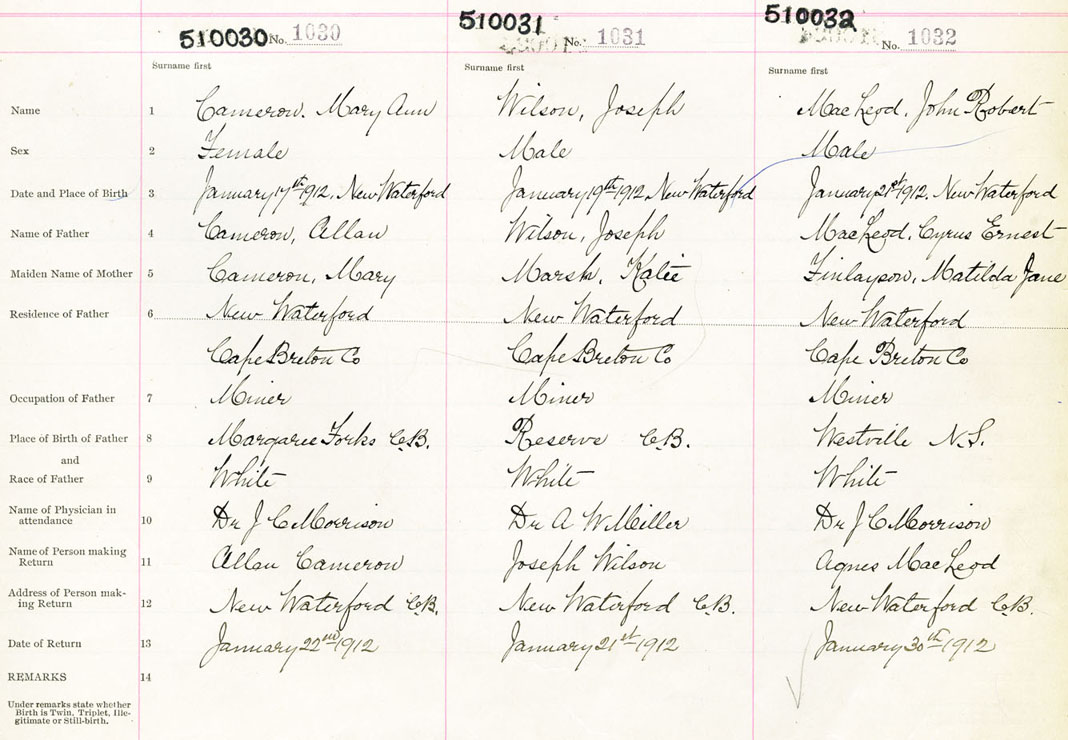 510030 No. 1030 510031 No. 1031 510032 No. 1032
Surname first Surname first Surname first
Name 1 Cameron. Mary Ann Wilson, Joseph MacLeod. John Robert
Sex 2 Female Male Male
Date and Place of Birth 3 January 17th 1912. New Waterford January 19th 1912 New Waterford January 21st 1912. New Waterford
Name of Father 4 Cameron, Allan Wilson, Joseph MacLeod. Cyrus Ernest
Maiden Name of Mother 5 Cameron, Mary Marsh, Katie Finlayson, Matilda Jane
Residence of Father 6 New Waterford New Waterford New Waterford
Cape Breton Co Cape Breton Co Cape Breton Co
Occupation of Father 7 Miner Miner Miner
Place of Birth of Father 8 Margaree Forks C.B. Reserve C.B. Westville N.S.
and
Race of Father 9 White White White
Name of Physician in
attendance 10 Dr J C Morrison Dr A W Miller Dr J C Morrison
Name of Person making
Return 11 Allan Cameron Joseph Wilson Agnes MacLeod
Address of Person mak-
ing Return 12 New Waterford C.B. New Waterford C.B. New Waterford C.B.
Date of Return 13 January 22nd 1912 January 21st 1912 January 30th 1912
REMARKS 14
Under remarks state whether
Birth is Twin, Triplet, Ille-
gitimate or Still-birth.